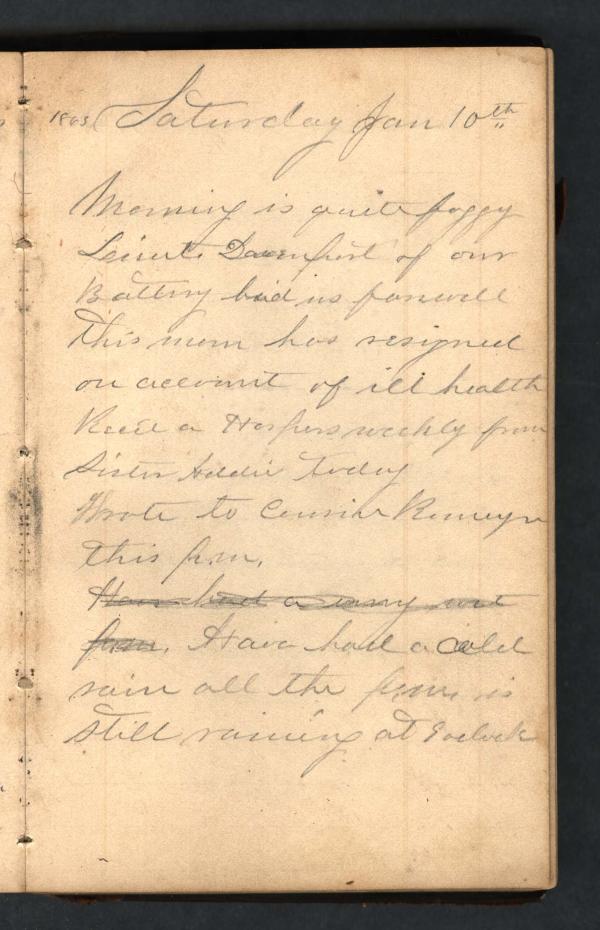 1863 Saturday Jan 10th
Morning is quite foggy
Leieut. Davenport of our
Battery bid us farwell
this morn has resigned
on account of ill health
Rec'd a Harpers weekly from
Sister Addie today
Wrote to Cousin Romeyn
this p.m.
Have had a very wet
p.m. Have had a cold
rain all the p.m. is
still raining at 8 oclock